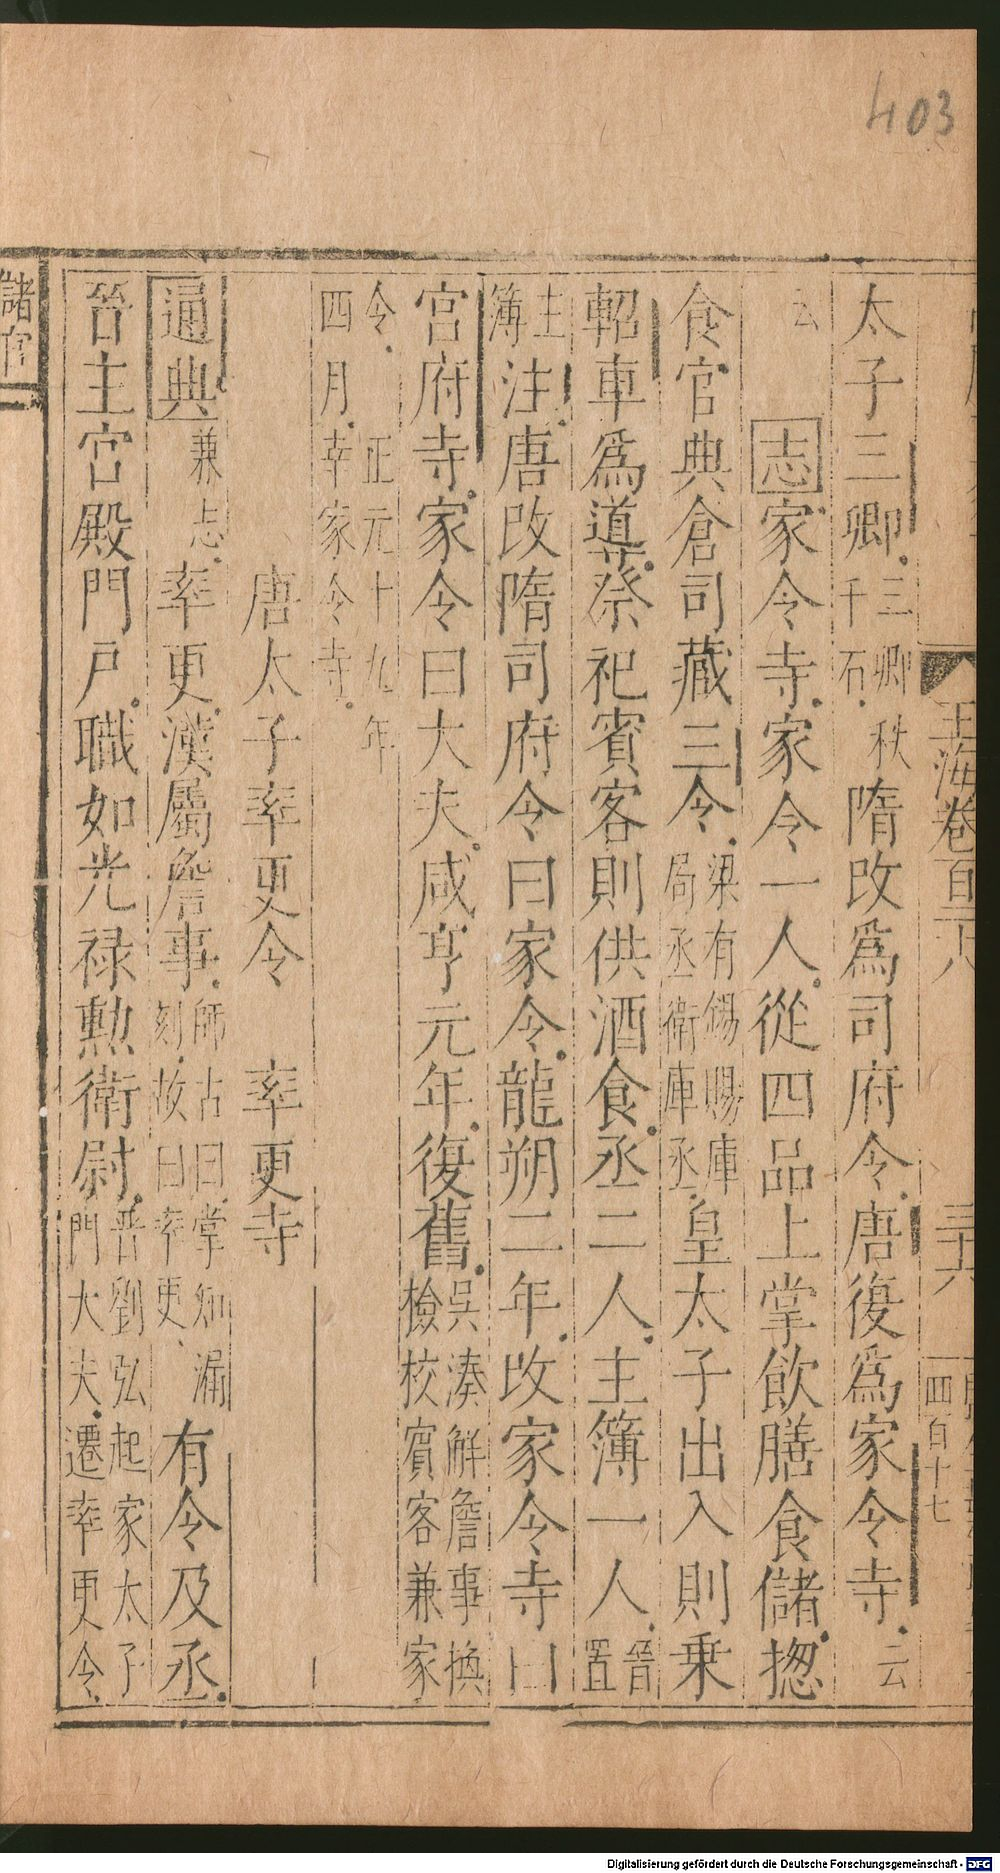 403
玉海卷百二十八
三十六
四百十七
太子三卿三卿秩千石隋改爲司府令唐復爲家令寺云
云志家令寺家令一人從四品上掌飲膳食儲揔
食官典倉司藏三令梁有錫賜庫局丞衛庫丞皇太子出入則乗
軺車爲導祭祀賓客則供酒食丞二人主簿一人晉置
主簿注唐改隋司府令曰家令龍朔二年改家令寺曰
宮府寺家令曰大夫咸亨元年復舊吳湊解詹事換檢校賓客兼家
令正元十九年四月幸家令寺
唐太子率更令　率更寺
通典兼志率更漢屬詹事師古曰掌知漏刻故曰率更有令及丞
晉主宮殿門戸職如光禄勲衛尉晉劉弘起家太子門大夫遷率更令
儲官
Digitalisierung gefördert durch die Deutsche Forschungsgemeinschaft - DFG